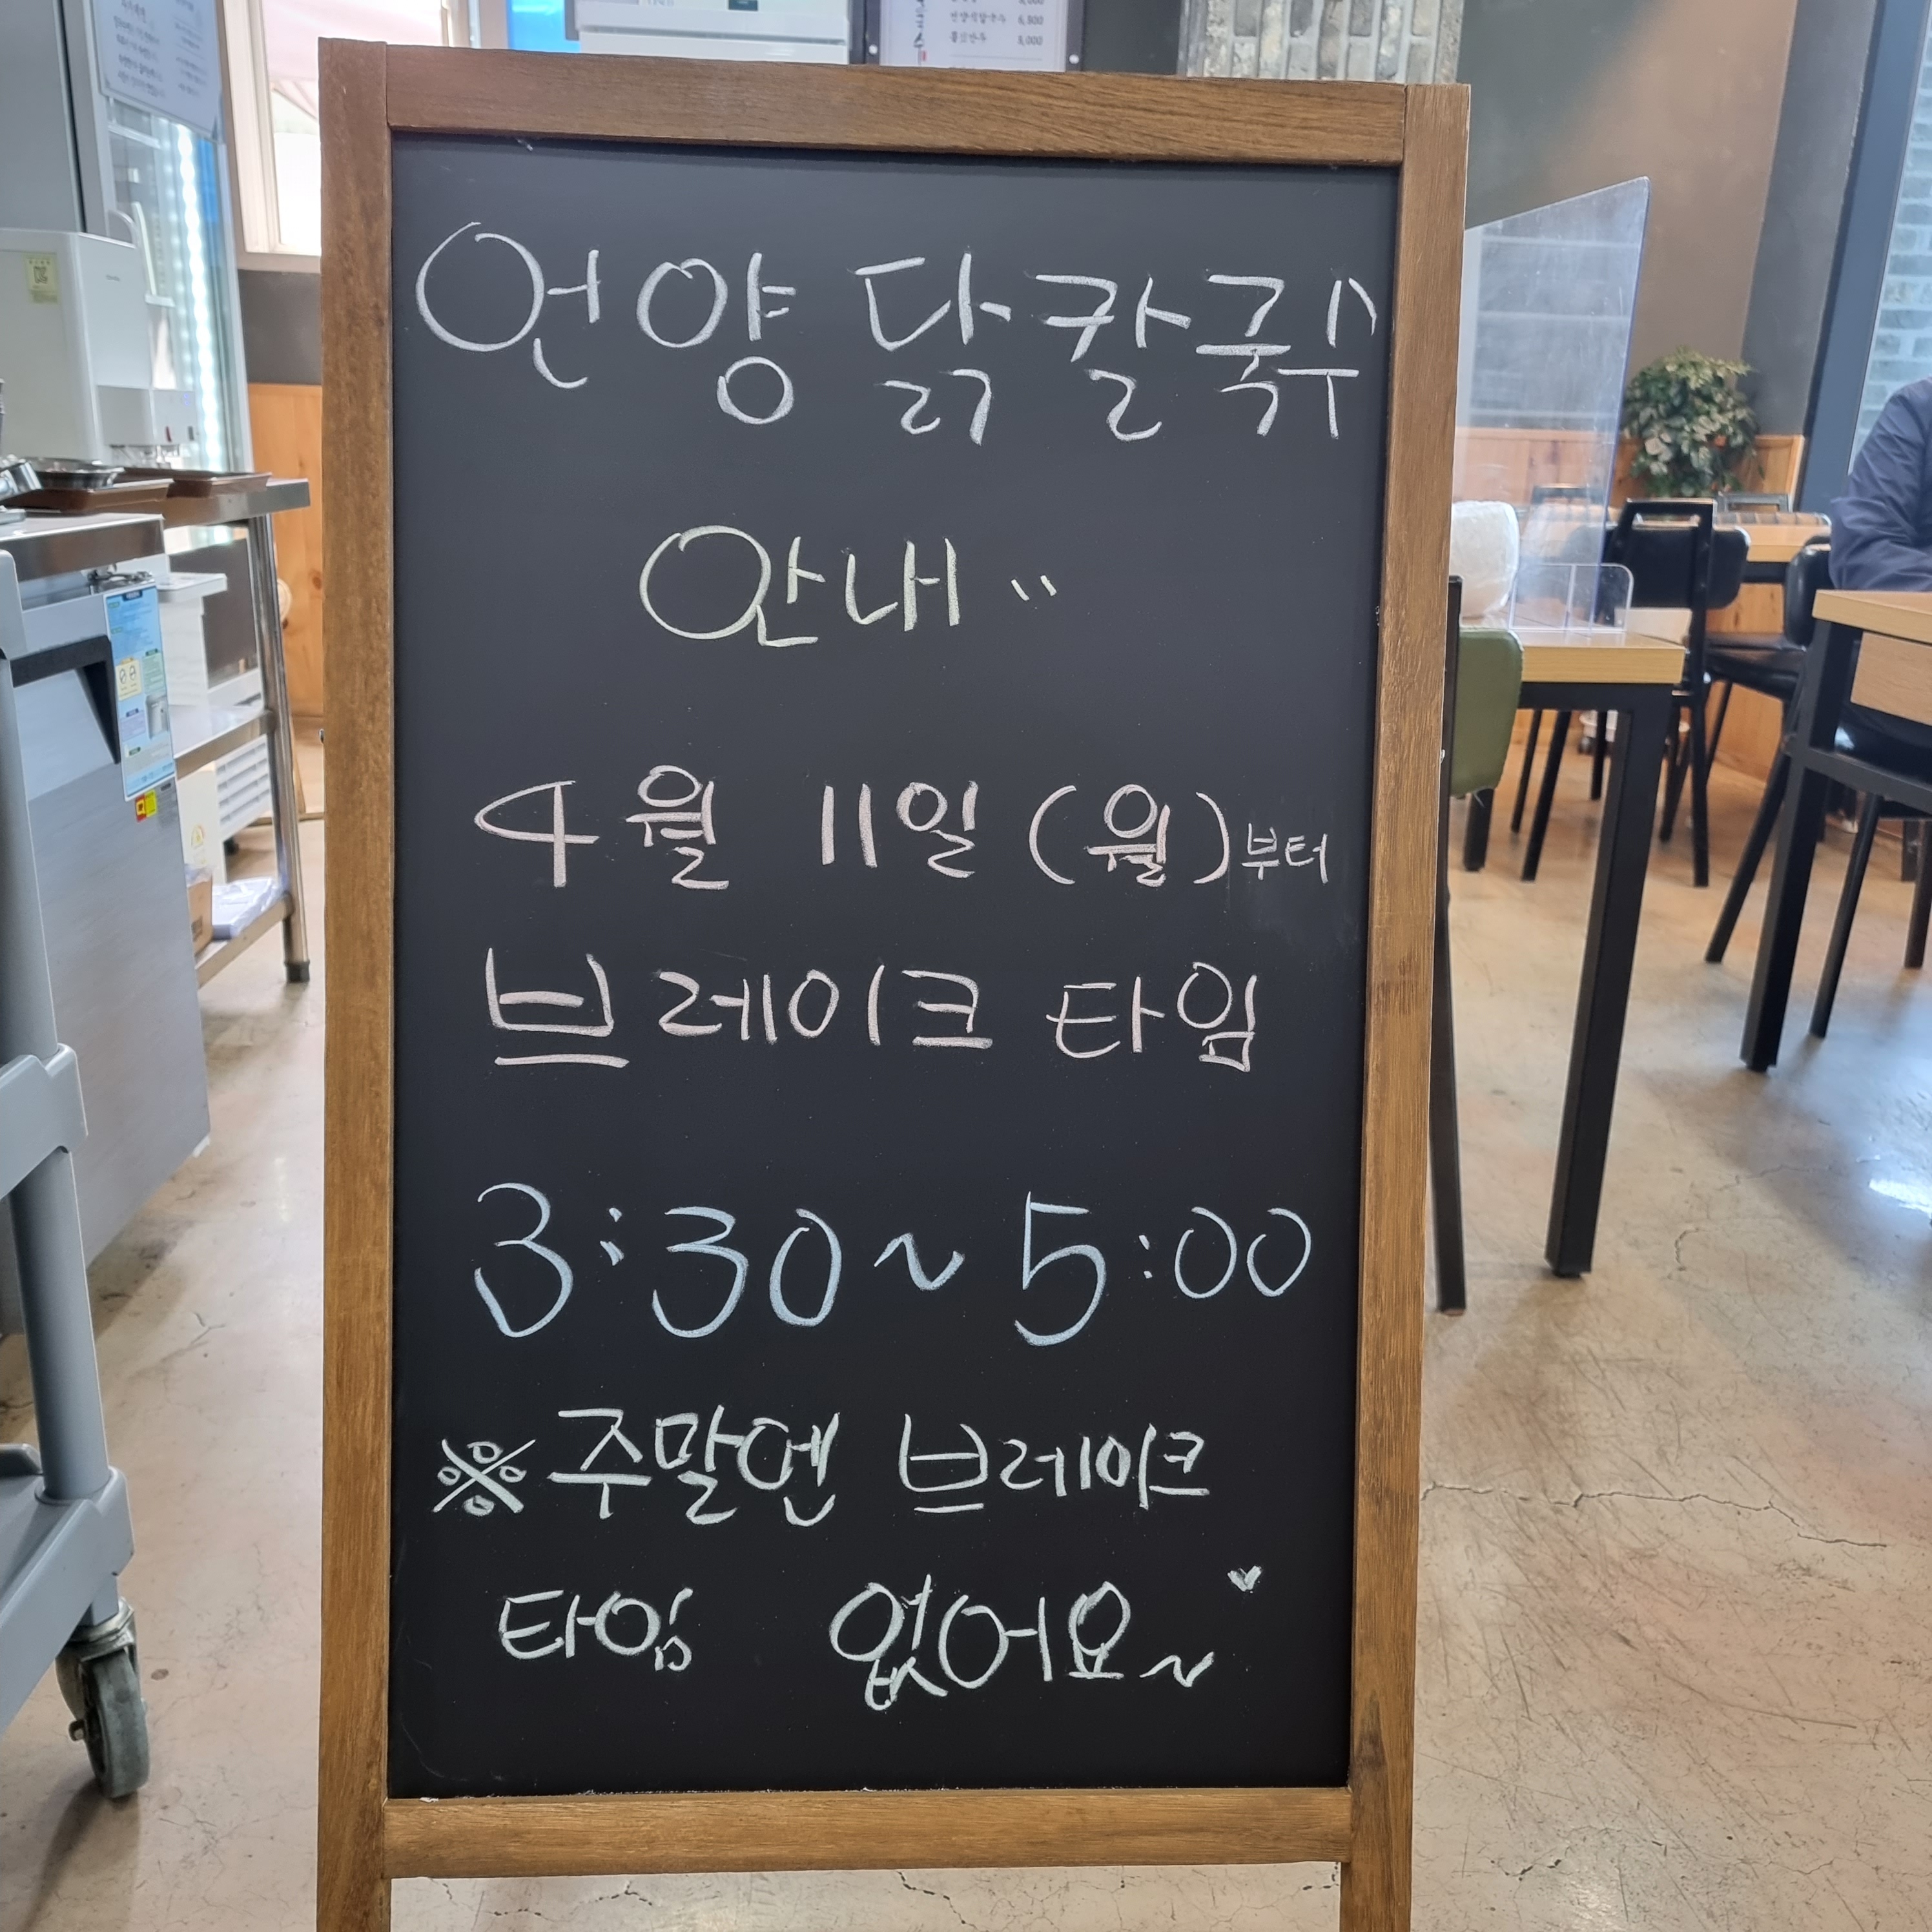 6,500
5,000
언양 닭칼국수
안내 "
4월 11일 (월)부터
브레이크 타임
3:30~5:00
※주말엔 브레이크
타임 없어요~♥